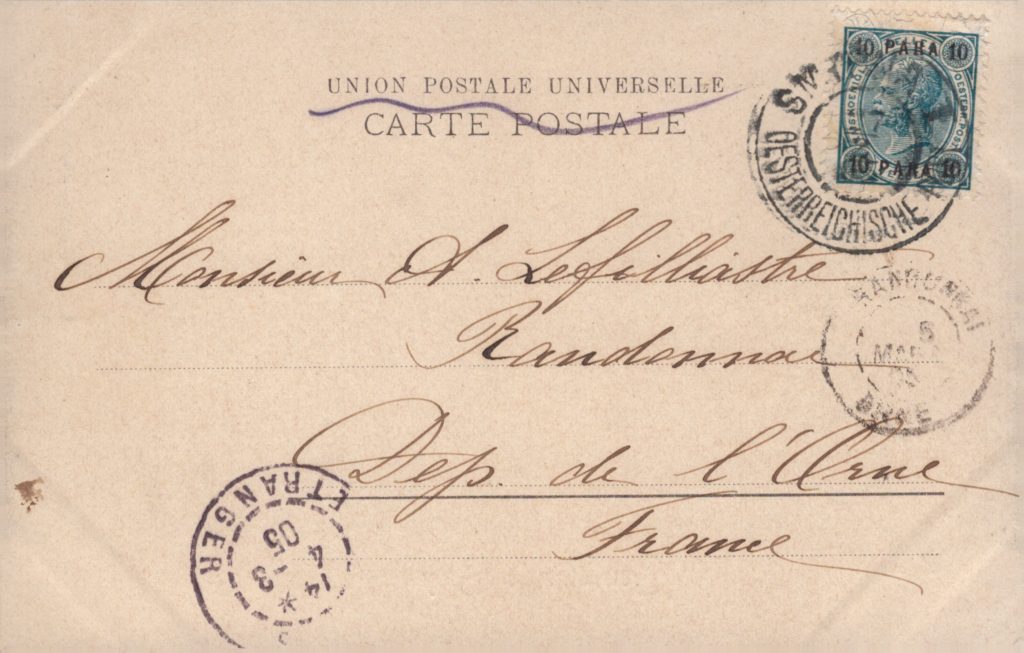 UNION POSTALE UNIVERSELLE
CARTE POSTALE
10 PARA 10
10 PARA 10
OESTERREICHISCHE
Monsieur A. Lefilliastre
Randonnai
Dep. de l'Orne
France
MARS
ORNE
ETRANGER
14 - 3
4
05